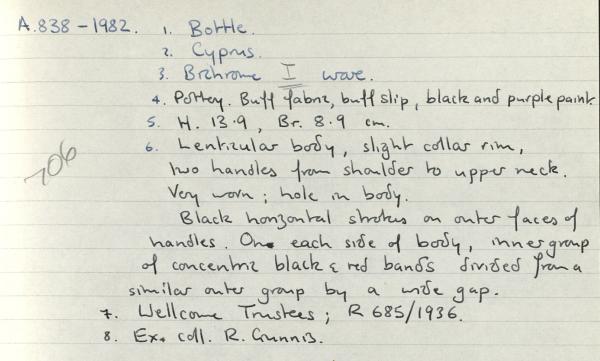 A.838-1982. 1. Bottle.
2. Cyprus.
3. Bichrome I ware.
4. Pottery. Buff fabric, buff slip, black and purple paint.
5. H. 13.9, Br. 8.9 cm.
6. Lenticular body, slight collar rim,
two handles from shoulder to upper neck.
Very worn; hole in body.
Black horizontal strokes on outer faces of
handles. On each side of body, inner group
of concentric black & red bands divided from a
similar outer group by a wide gap.
7. Wellcome Trustees; R 685/1936.
8. Ex. coll. R. Gunnis.
706